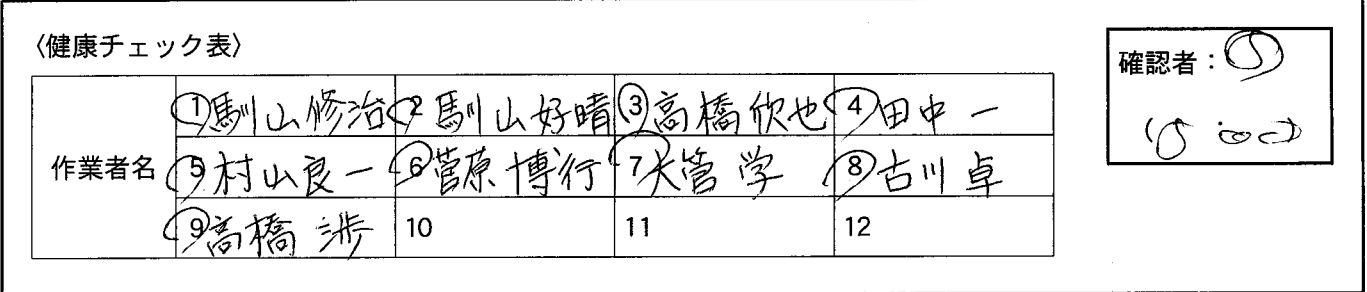 〈健康チェック表〉
確認者：
作業者名
①馴山修治 ②馴山好晴 ③高橋欣也 ④田中一
⑤村山良一 ⑥菅原博行 ⑦大管学 ⑧古川卓
⑨高橋渉 10 11 12